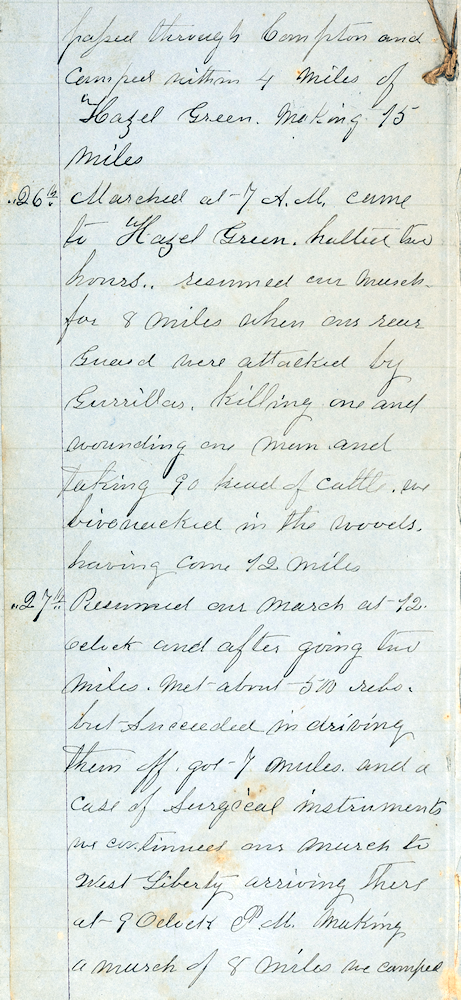 passed through Compton and
camped within 4 miles of
"Hazel Green. Making 15
miles
"26th" Marched at 7 A.M. came
to "Hazel Green. halted two
hours.. resumed our march
for 8 miles when our rear
Guard were attacked by
Gurrillas. killing one and
wounding one man and
taking 90 head of cattle. we
bivouacked in the woods.
having come 12 miles
"27th" Resumed our march at 12.
oclock and after going two
miles. met about 500 rebs.
but succeeded in driving
them off. got 7 mules. and a
case of Surgical instruments
we continued our march to
West Liberty arriving there
at 9 Oclock P.M. Making
a march of 8 miles we camped